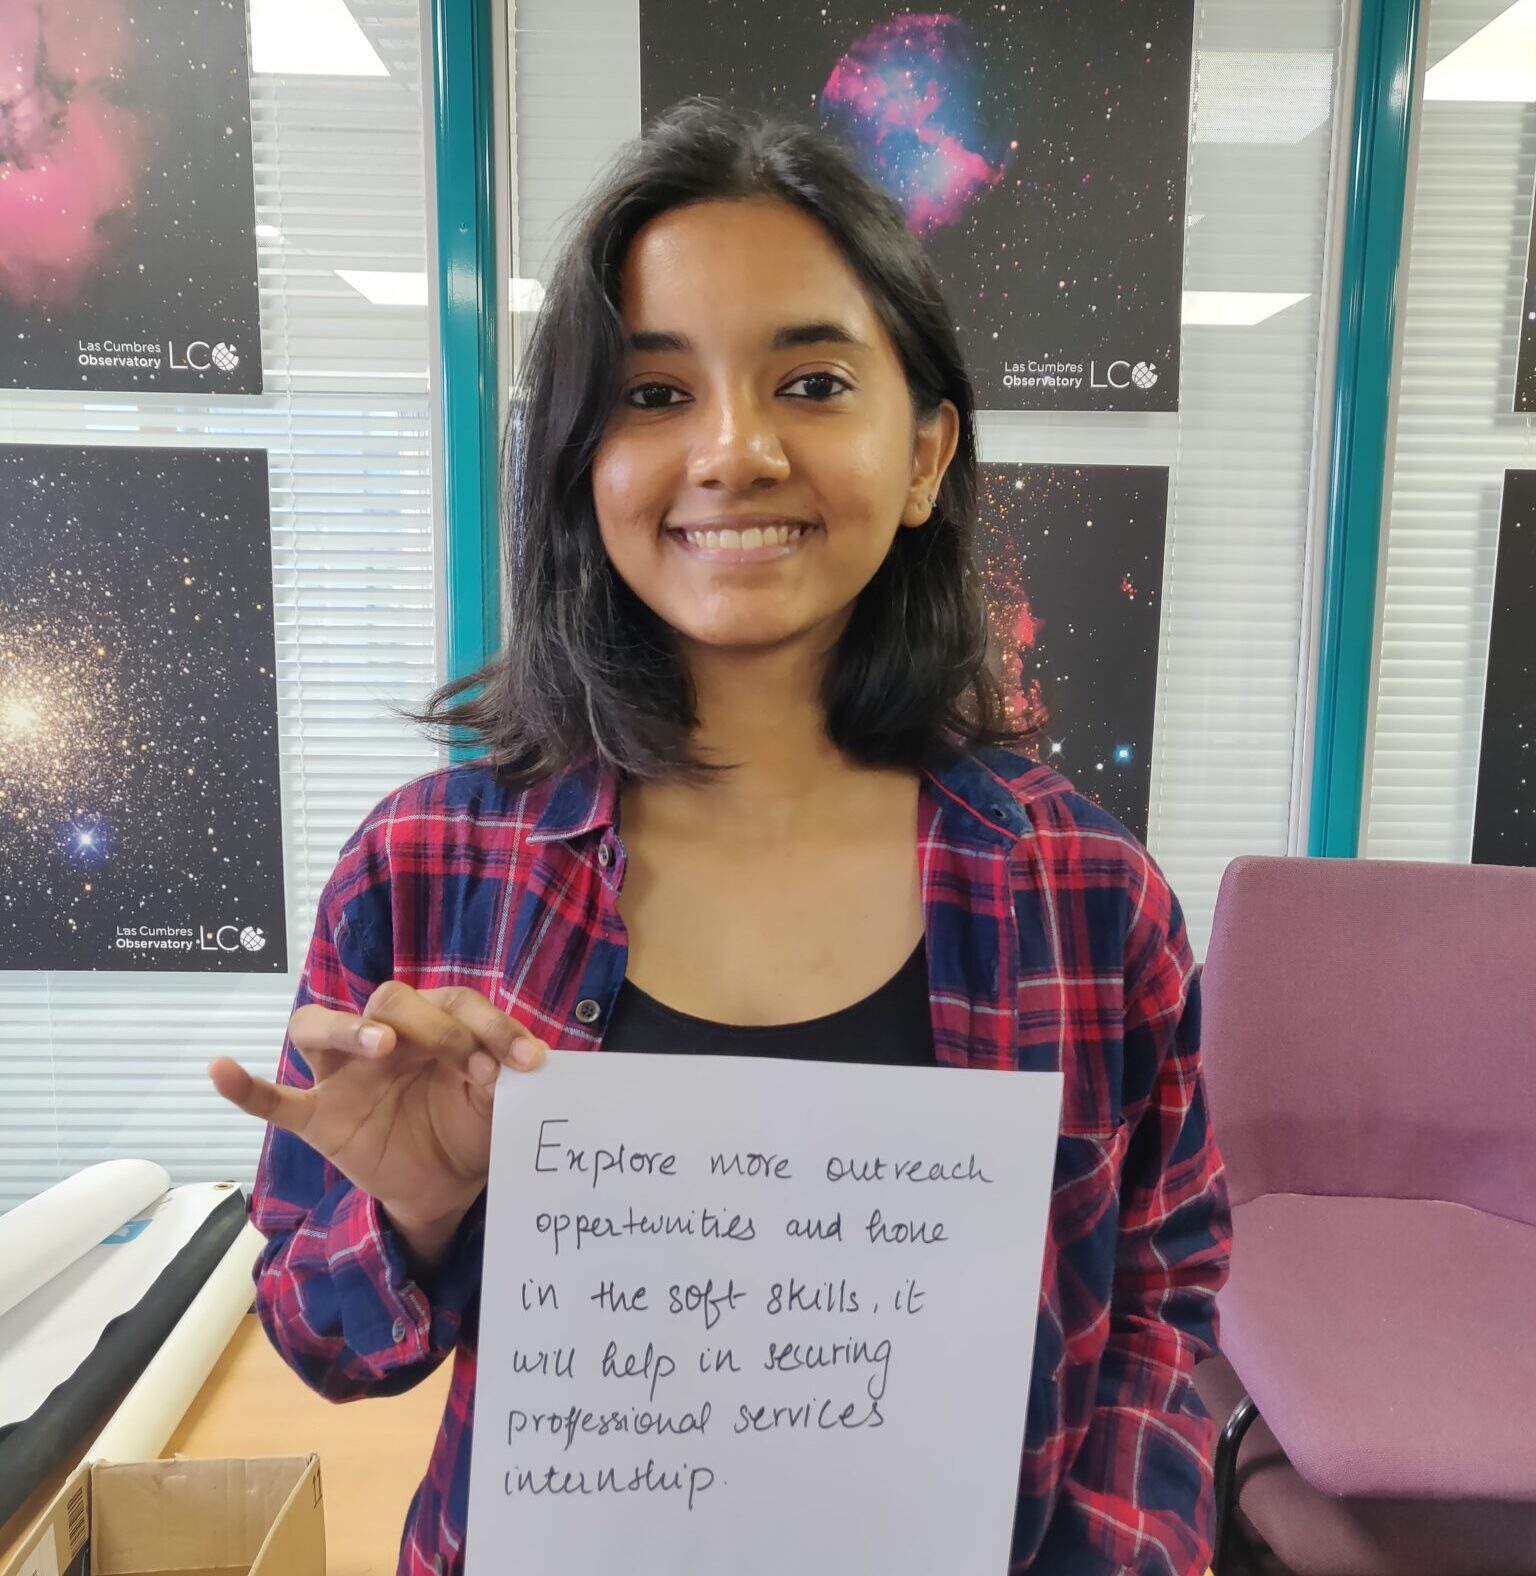 Las Cumbres
Observatory LCO
Las Cumbres
Observatory LCO
Las Cumbres
Observatory LCO
Explore more outreach
oppertunities and hone
in the soft skills, it
will help in securing
proffessional services
internship.